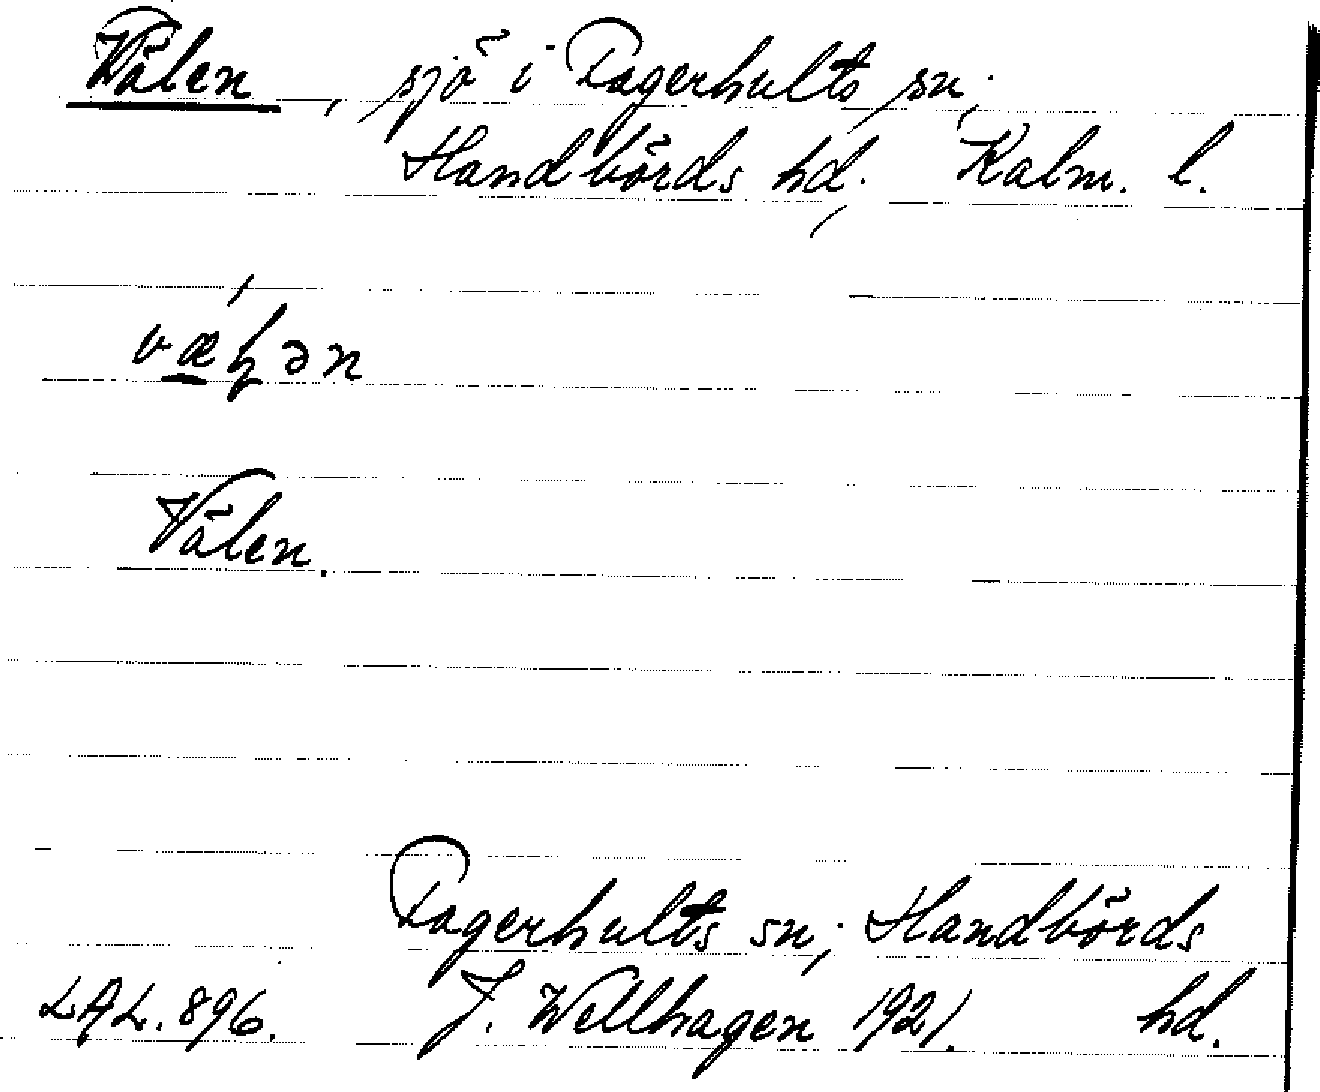 Wälen, sjö i Fagerhults sn;
Handbörds hd. Kalm. l.
væɭən
Välen.
Fagerhults sn; Handbörds
LAL. 896. J. Wellhagen 1921. hd.